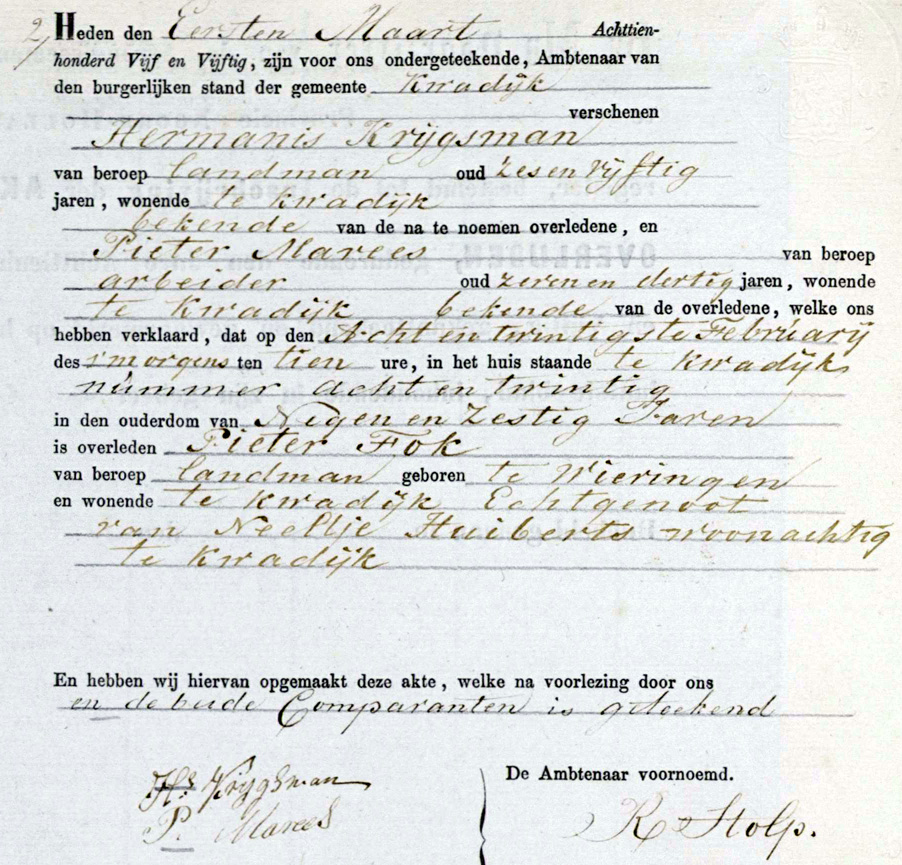 2 Heden den Eersten Maart Achttien-
honderd Vijf en Vijftig, zijn voor ons ondergeteekende, Ambtenaar van
den burgerlijken stand der gemeente Kwadijk
verschenen
Hermanis Krijgsman
van beroep landman oud zes en vijftig
jaren, wonende te Kwadijk
bekende van de na te noemen overledene, en
Pieter Marees van beroep
arbeider oud zeven en dertig jaren, wonende
te Kwadijk bekende van de overledene, welke ons
hebben verklaard, dat op den Acht en twintigste Februarij
des s'morgens ten tien ure, in het huis staande te Kwadijk
nummer acht en twintig
in den ouderdom van Nigen en Zestig Jaren
is overleden Pieter Fok
van beroep landman geboren te Wieringen
en wonende te Kwadijk Echtgenoot
van Neeltje Huiberts woonachtig
te Kwadijk
En hebben wij hiervan opgemaakt deze akte, welke na voorlezing door ons
en de beide Comparanten is geteekend
De Ambtenaar voornoemd.
Hs Krijgsman
P. Marees
K Stolp.